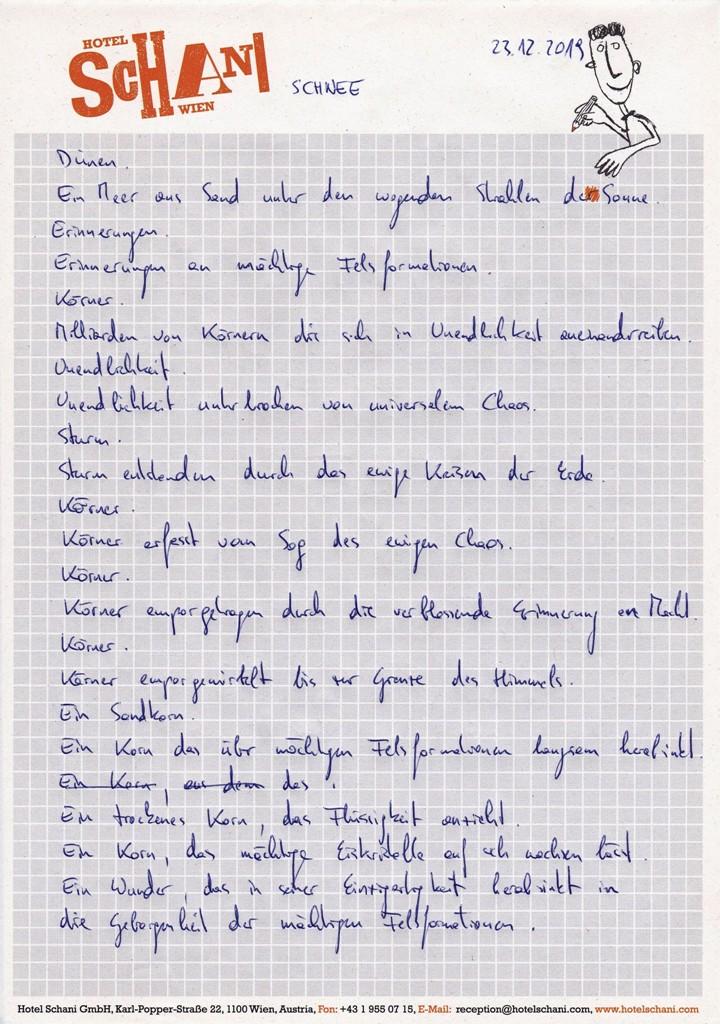 HOTEL
SCHANI
WIEN
SCHNEE
23.12.2019
Dünen.
Ein Meer aus Sand unter den wogenden Strahlen der Sonne.
Erinnerungen.
Erinnerungen an mächtige Felsformationen.
Körner.
Milliarden von Körnern die sich in Unendlichkeit aneinanderreihen.
Unendlichkeit.
Unendlichkeit unterbrochen von universalem Chaos.
Sturm.
Sturm entstanden durch das ewige Kreisen der Erde.
Körner.
Körner erfasst vom Sog des ewigen Chaos.
Körner.
Körner emporgetragen durch die verblassende Erinnerung an Macht.
Körner.
Körner emporgewirbelt bis zur Grenze des Himmels.
Ein Sandkorn.
Ein Korn das über mächtigen Felsformationen langsam herabsinkt.
Ein Korn, aus dem das.
Ein trockenes Korn, das Flüssigkeit anzieht.
Ein Korn, das mächtige Eiskristalle auf sich wachsen lässt.
Ein Wunder, das in seiner Einzigartigkeit herabsinkt in
die Geborgenheit der mächtigen Felsformationen.
Hotel Schani GmbH, Karl-Popper-Straße 22, 1100 Wien, Austria, Fon: +43 1 955 07 15, E-Mail: reception@hotelschani.com, www.hotelschani.com